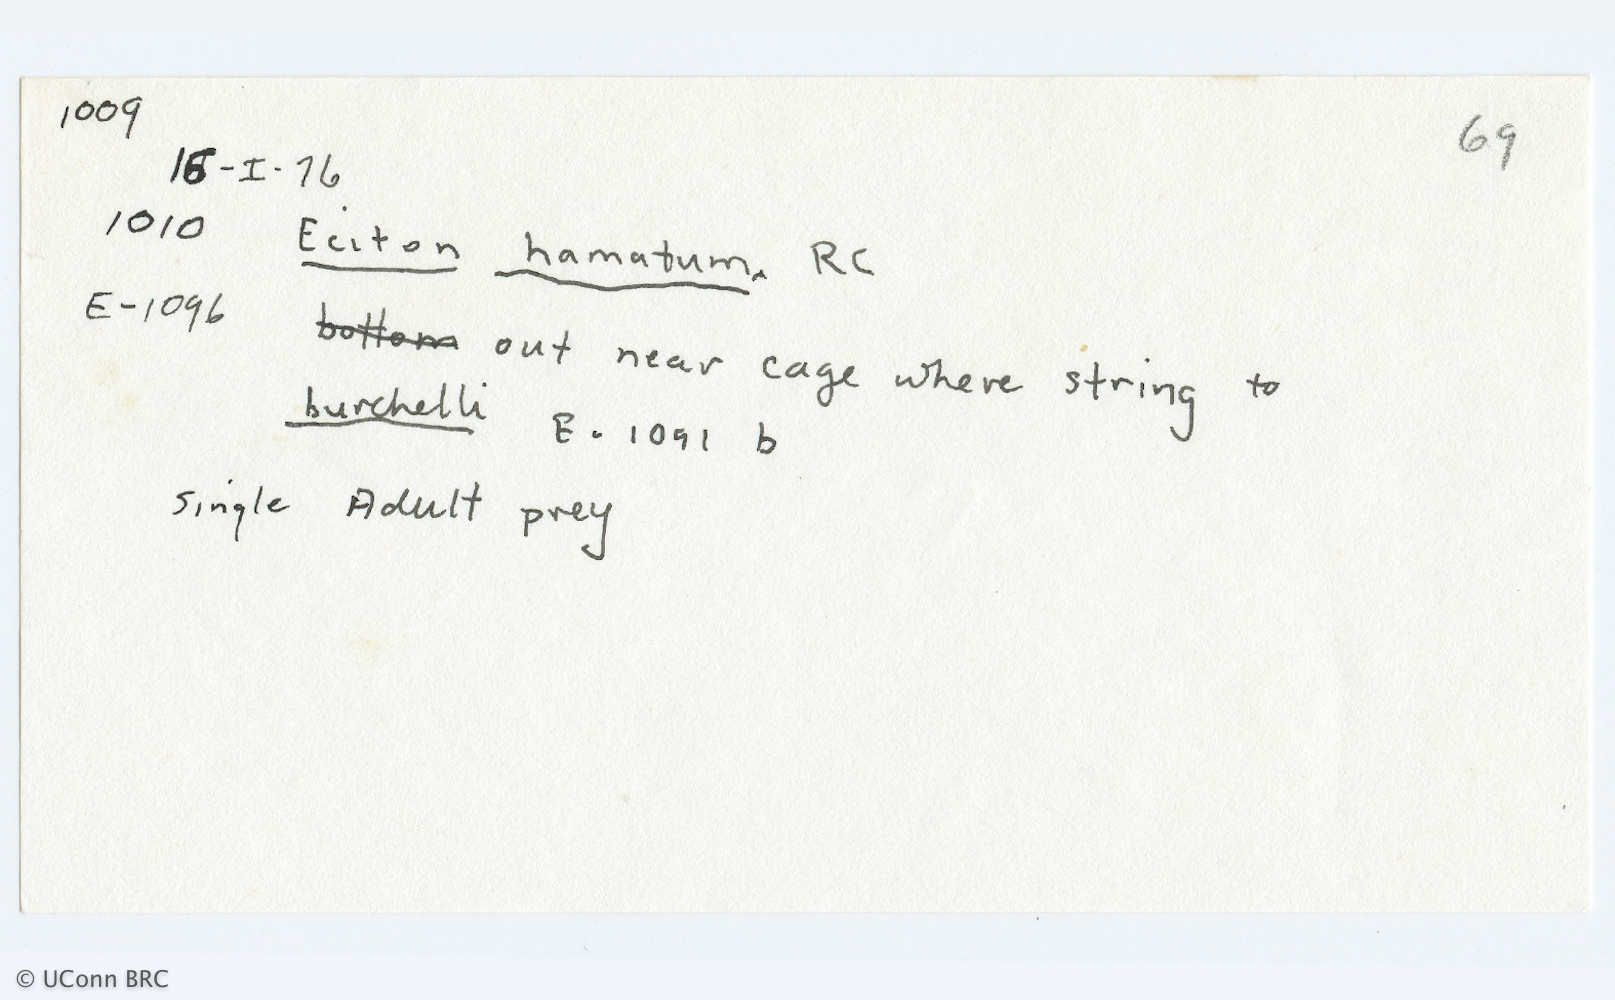 1009
69
16-I-76
1010 Eciton hamatum. RC
E-1096 bottom out near cage where string to
burchelli E. 1091 b
single Adult prey
© UConn BRC